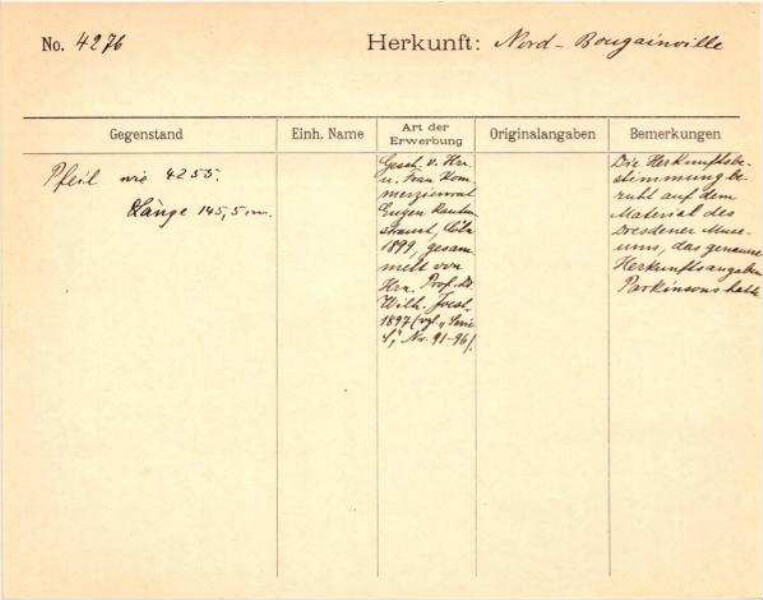 No. 4276
Herkunft: Nord-Bougainville
Gegenstand
Einh. Name
Art der Erwerbung
Originalangaben
Bemerkungen
Pfeil wie 4255.
Länge 145,5 cm.
Gesch. v. Hrn
u. Frau Kom-
merzienrat
Eugen Rauten-
strauch, Cöln
1899, gesam-
melt von
Hrn. Prof. Dr.
Wilh. Joest,
1897 (vgl. „Serie
Nr. 91-96).
Die Herkunftsbe-
stimmung be-
ruht auf dem
Material des
Dresdener Muse-
ums, das genauere
Herkunftsangaben
Parkinsons hatte